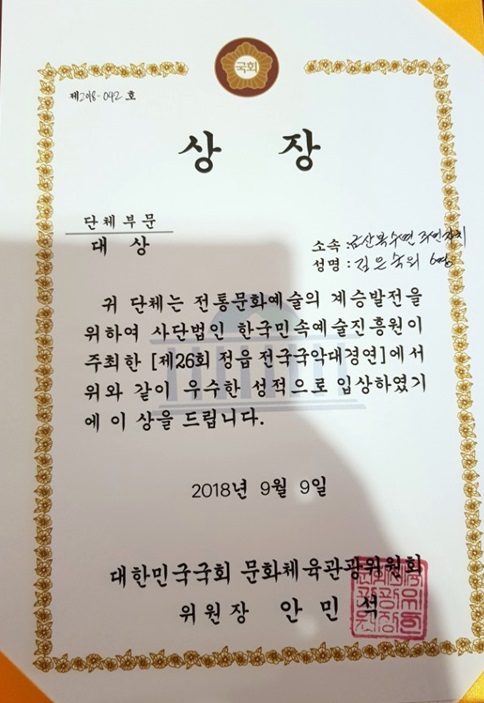 국회
제2018-092호
상 장
단체부문
대 상
소속 : 금산복수면 주민자치
성명 : 김은숙외 6명
귀 단체는 전통문화예술의 계승발전을
위하여 사단법인 한국민속예술진흥원이
주최한 [제26회 정읍 전국국악대경연]에서
위와 같이 우수한 성적으로 입상하였기
에 이 상을 드립니다.
2018년 9월 9일
대한민국국회 문화체육관광위원회
위원장 안 민 석